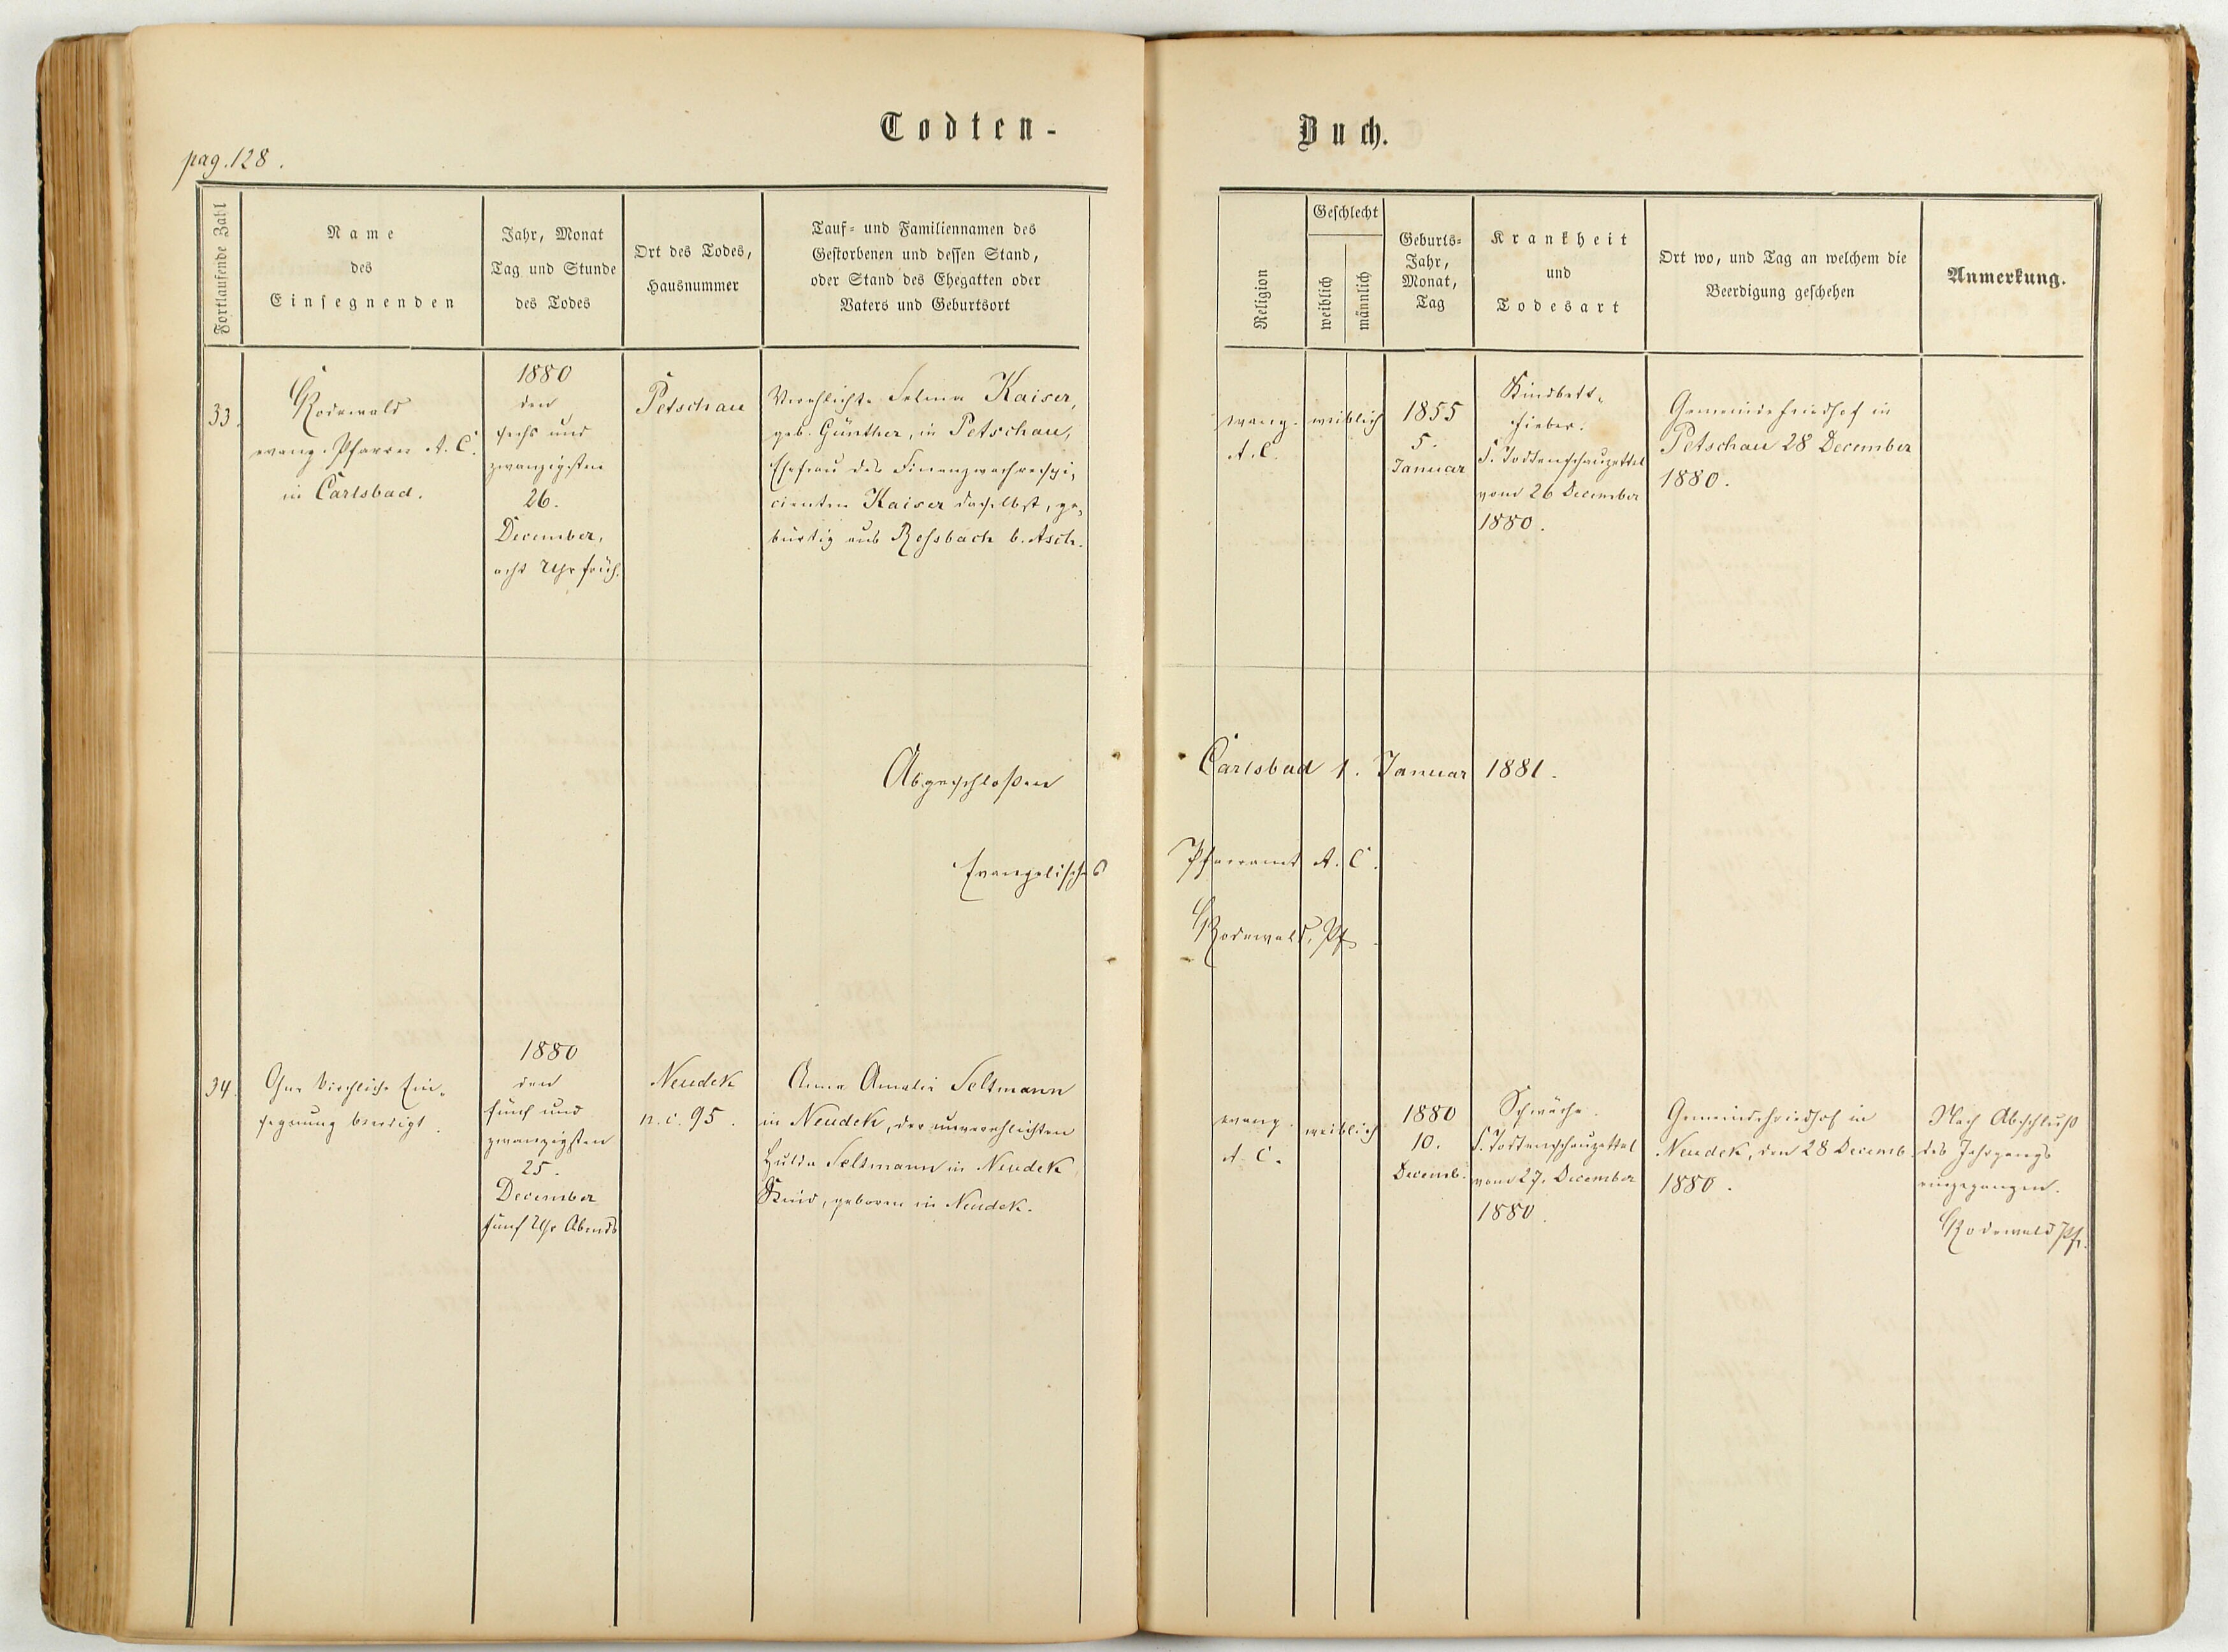 Todten-
Buch.
pag. 128.
Fortlaufende Zahl
Name
des
Einsegnenden
Jahr, Monat
Tag und Stunde
des Todes
Ort des Todes,
Hausnummer
Tauf- und Familiennamen des
Gestorbenen und dessen Stand,
oder Stand des Ehegatten oder
Vaters und Geburtsort
Religion
Geschlecht
weiblich
männlich
Geburts-
Jahr,
Monat,
Tag
Krankheit
und
Todesart
Ort wo, und Tag an welchem die
Beerdigung geschehen
Anmerkung.
33.
Rodewald
evang. Pfarrer A. C.
in Carlsbad.
1880
den
sechs und
zwanzigsten
26.
December,
acht Uhr früh.
Petschau
Verehlichte Selma Kaiser,
geb. Günther, in Petschau,
Ehefrau des Finanzwachrespi-
cienten Kaiser daselbst, ge-
bürtig aus Rossbach b. Asch.
evang.
A. C.
weiblich
1855
5.
Januar
Kindbett-
fieber.
S. Todtenschauzettel
vom 26 December
1880.
Gemeindefriedhof in
Petschau 28 December
1880.
Abgeschloßen Carlsbad 1. Januar 1881.
Evangelisches Pfarramt A. C.
Rodewald, Pf.
34.
Ohne kirchliche Ein-
segnung beerdigt.
1880
den
fünf und
zwanzigsten
25.
December
fünf Uhr Abends
Neudek
n. c. 95.
Anna Amalie Seltmann
in Neudek, der unverehlichten
Hulda Seltmann in Neudek
Kind, geboren in Neudek.
evang.
A. C.
weiblich
1880
10.
Decemb.
Schwäche.
S. Todtenschauzettel
vom 27. December
1880.
Gemeindefriedhof in
Neudek, den 28 Decemb.
1880.
Nach Abschluß
des Jahrgangs
eingegangen.
Rodewald Pf.